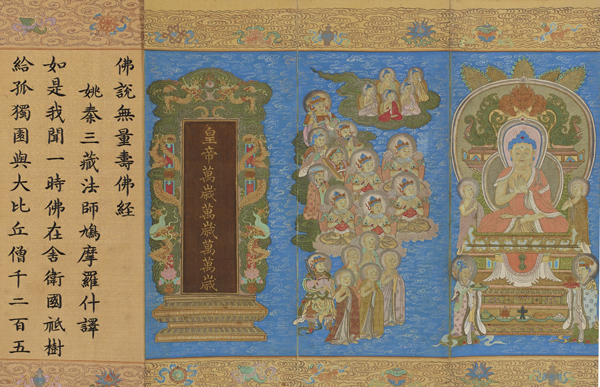 皇帝萬歲萬歲萬萬歲
佛說無量壽佛經
姚秦三藏法師鳩摩羅什譯
如是我聞一時佛在舍衛國祇樹
給孤獨園與大比丘僧千二百五